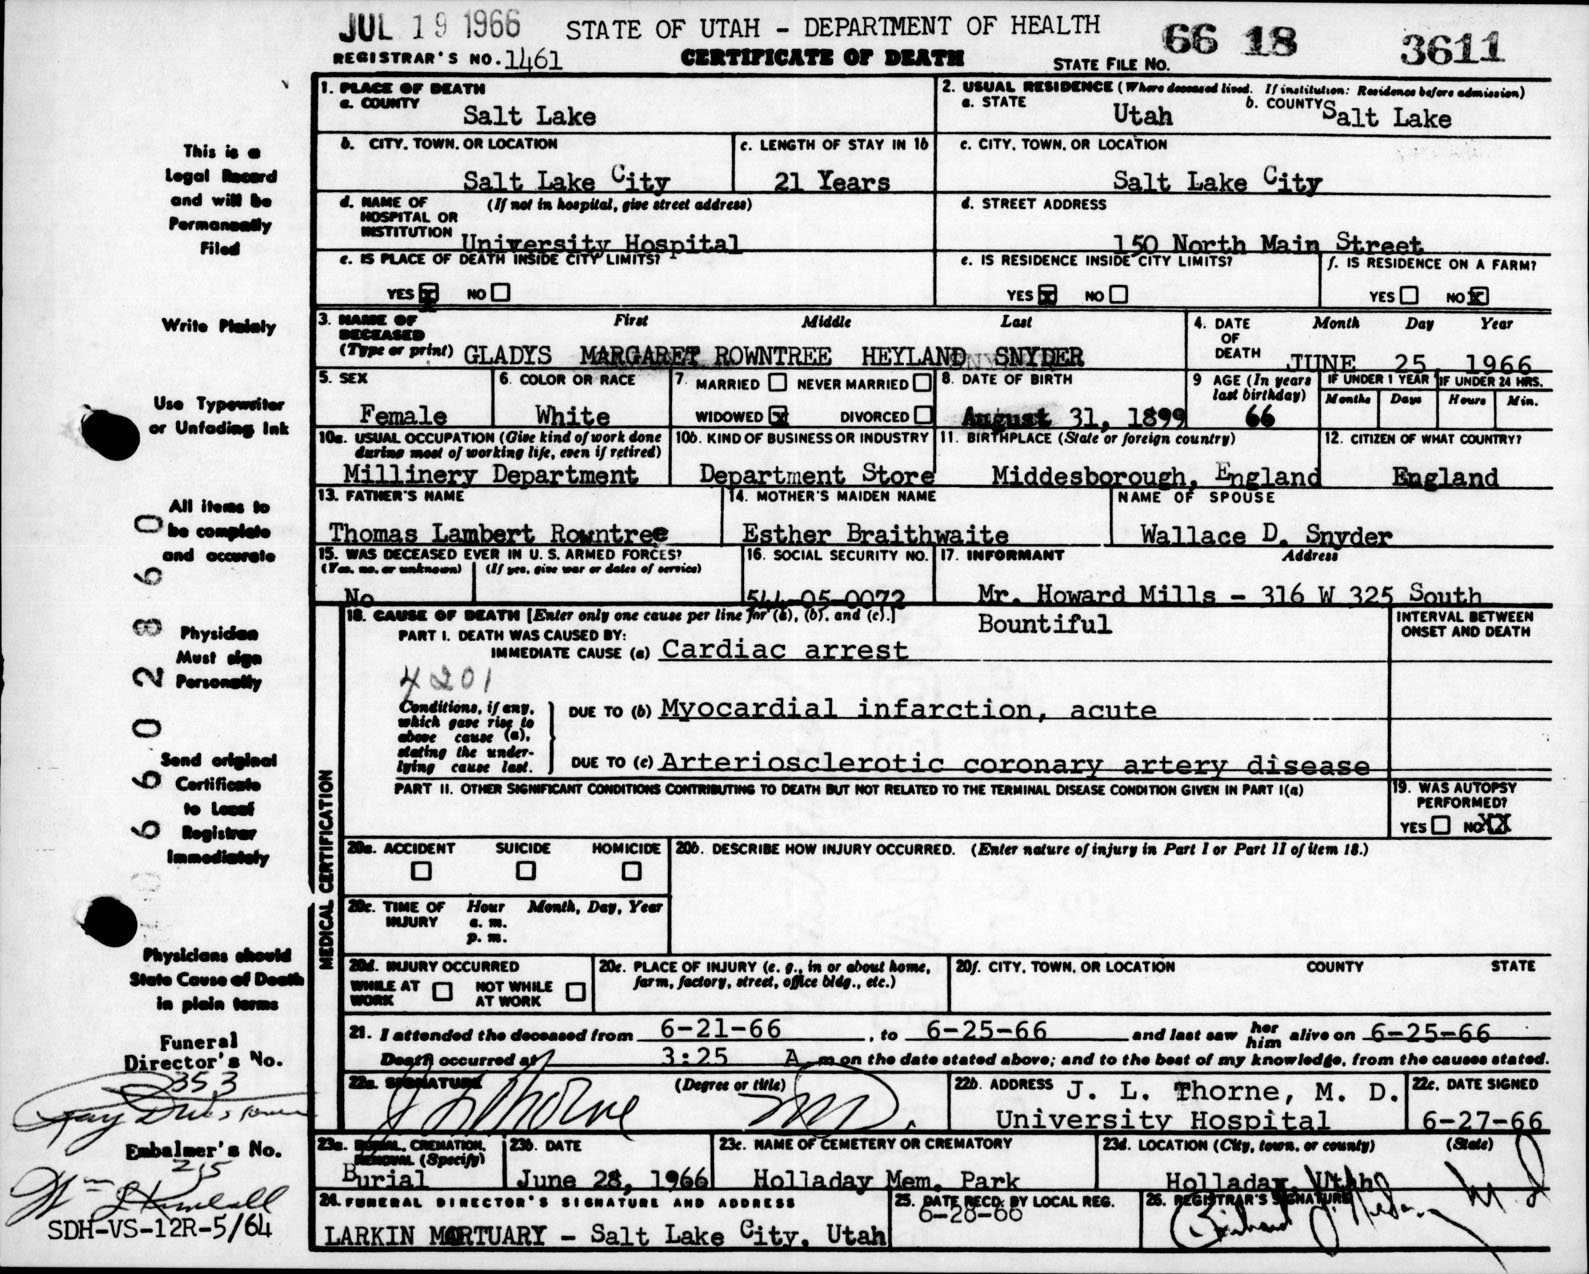 JUL 19 1966 STATE OF UTAH - DEPARTMENT OF HEALTH 66 18 3611
REGISTRAR'S NO. 1461 CERTIFICATE OF DEATH STATE FILE NO.
1. PLACE OF DEATH
a. COUNTY
Salt Lake
2. USUAL RESIDENCE (Where deceased lived. If institution: Residence before admission)
a. STATE b. COUNTY
Utah Salt Lake
b. CITY, TOWN, OR LOCATION
Salt Lake City
c. LENGTH OF STAY IN 1b
21 Years
c. CITY, TOWN, OR LOCATION
Salt Lake City
d. NAME OF HOSPITAL OR INSTITUTION (If not in hospital, give street address)
University Hospital
d. STREET ADDRESS
150 North Main Street
e. IS PLACE OF DEATH INSIDE CITY LIMITS?
YES X NO
e. IS RESIDENCE INSIDE CITY LIMITS?
YES X NO
f. IS RESIDENCE ON A FARM?
YES NO X
3. NAME OF DECEASED (Type or print) First Middle Last
GLADYS MARGARET ROWNTREE HEYLAND SNYDER
4. DATE OF DEATH Month Day Year
JUNE 25, 1966
5. SEX
Female
6. COLOR OR RACE
White
7. MARRIED NEVER MARRIED
WIDOWED X DIVORCED
8. DATE OF BIRTH
August 31, 1899
9 AGE (In years last birthday)
66
IF UNDER 1 YEAR IF UNDER 24 HRS.
Months Days Hours Min.
10a. USUAL OCCUPATION (Give kind of work done during most of working life, even if retired)
Millinery Department
10b. KIND OF BUSINESS OR INDUSTRY
Department Store
11. BIRTHPLACE (State or foreign country)
Middesborough, England
12. CITIZEN OF WHAT COUNTRY?
England
13. FATHER'S NAME
Thomas Lambert Rowntree
14. MOTHER'S MAIDEN NAME
Esther Braithwaite
NAME OF SPOUSE
Wallace D. Snyder
15. WAS DECEASED EVER IN U. S. ARMED FORCES?
(Yes, no, or unknown) (If yes, give war or dates of service)
No
16. SOCIAL SECURITY NO.
544-05-0072
17. INFORMANT Address
Mr. Howard Mills - 316 W 325 South
Bountiful
18. CAUSE OF DEATH [Enter only one cause per line for (a), (b), and (c).]
INTERVAL BETWEEN ONSET AND DEATH
PART I. DEATH WAS CAUSED BY:
IMMEDIATE CAUSE (a) Cardiac arrest
4201
Conditions, if any, which gave rise to above cause (a), stating the underlying cause last.
DUE TO (b) Myocardial infarction, acute
DUE TO (c) Arteriosclerotic coronary artery disease
PART II. OTHER SIGNIFICANT CONDITIONS CONTRIBUTING TO DEATH BUT NOT RELATED TO THE TERMINAL DISEASE CONDITION GIVEN IN PART I(a)
19. WAS AUTOPSY PERFORMED?
YES NO XX
MEDICAL CERTIFICATION
20a. ACCIDENT SUICIDE HOMICIDE
20b. DESCRIBE HOW INJURY OCCURRED. (Enter nature of injury in Part I or Part II of item 18.)
20c. TIME OF INJURY Hour Month, Day, Year
a. m.
p. m.
20d. INJURY OCCURRED
WHILE AT WORK NOT WHILE AT WORK
20e. PLACE OF INJURY (e. g., in or about home, farm, factory, street, office bldg., etc.)
20f. CITY, TOWN, OR LOCATION COUNTY STATE
21. I attended the deceased from 6-21-66, to 6-25-66 and last saw her him alive on 6-25-66
Death occurred at 3:25 A. m on the date stated above; and to the best of my knowledge, from the causes stated.
22a. SIGNATURE (Degree or title)
J L Thorne MD.
22b. ADDRESS J. L. Thorne, M. D.
University Hospital
22c. DATE SIGNED
6-27-66
23a. BURIAL, CREMATION, REMOVAL (Specify)
Burial
23b. DATE
June 28, 1966
23c. NAME OF CEMETERY OR CREMATORY
Holladay Mem. Park
23d. LOCATION (City, town, or county) (State)
Holladay, Utah
24. FUNERAL DIRECTOR'S SIGNATURE AND ADDRESS
LARKIN MORTUARY - Salt Lake City, Utah
25. DATE RECD. BY LOCAL REG.
6-28-66
26. REGISTRAR'S SIGNATURE
This is a
Legal Record
and will be
Permanently
Filed
Write Plainly
Use Typewriter
or Unfading Ink
All items to
be complete
and accurate
Physician
Must sign
Personally
Send original
Certificate
to Local
Registrar
Immediately
Physicians should
State Cause of Death
in plain terms
Funeral
Director's No.
353
Embalmer's No.
215
Wm
SDH-VS-12R-5/64